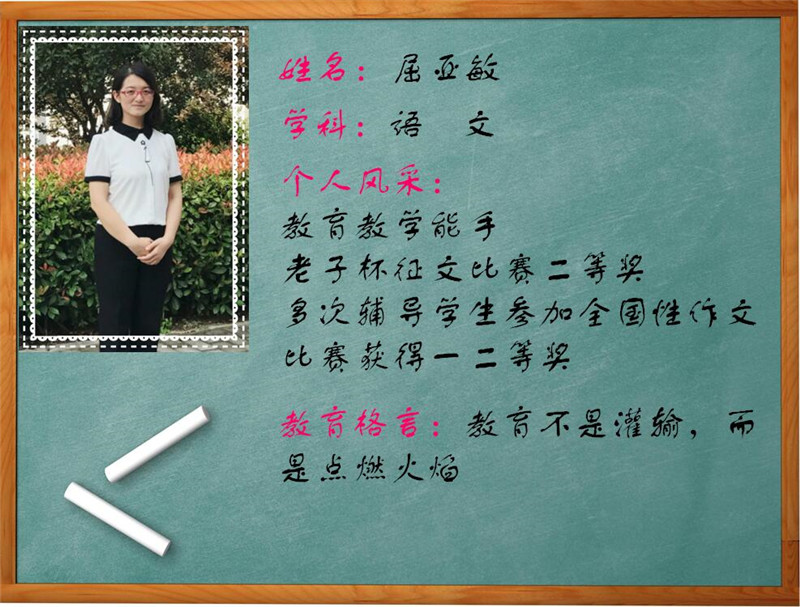 姓名：屈亚敏
学科：语 文
个人风采：
教育教学能手
老子杯征文比赛二等奖
多次辅导学生参加全国性作文
比赛获得一二等奖
教育格言：教育不是灌输，而
是点燃火焰